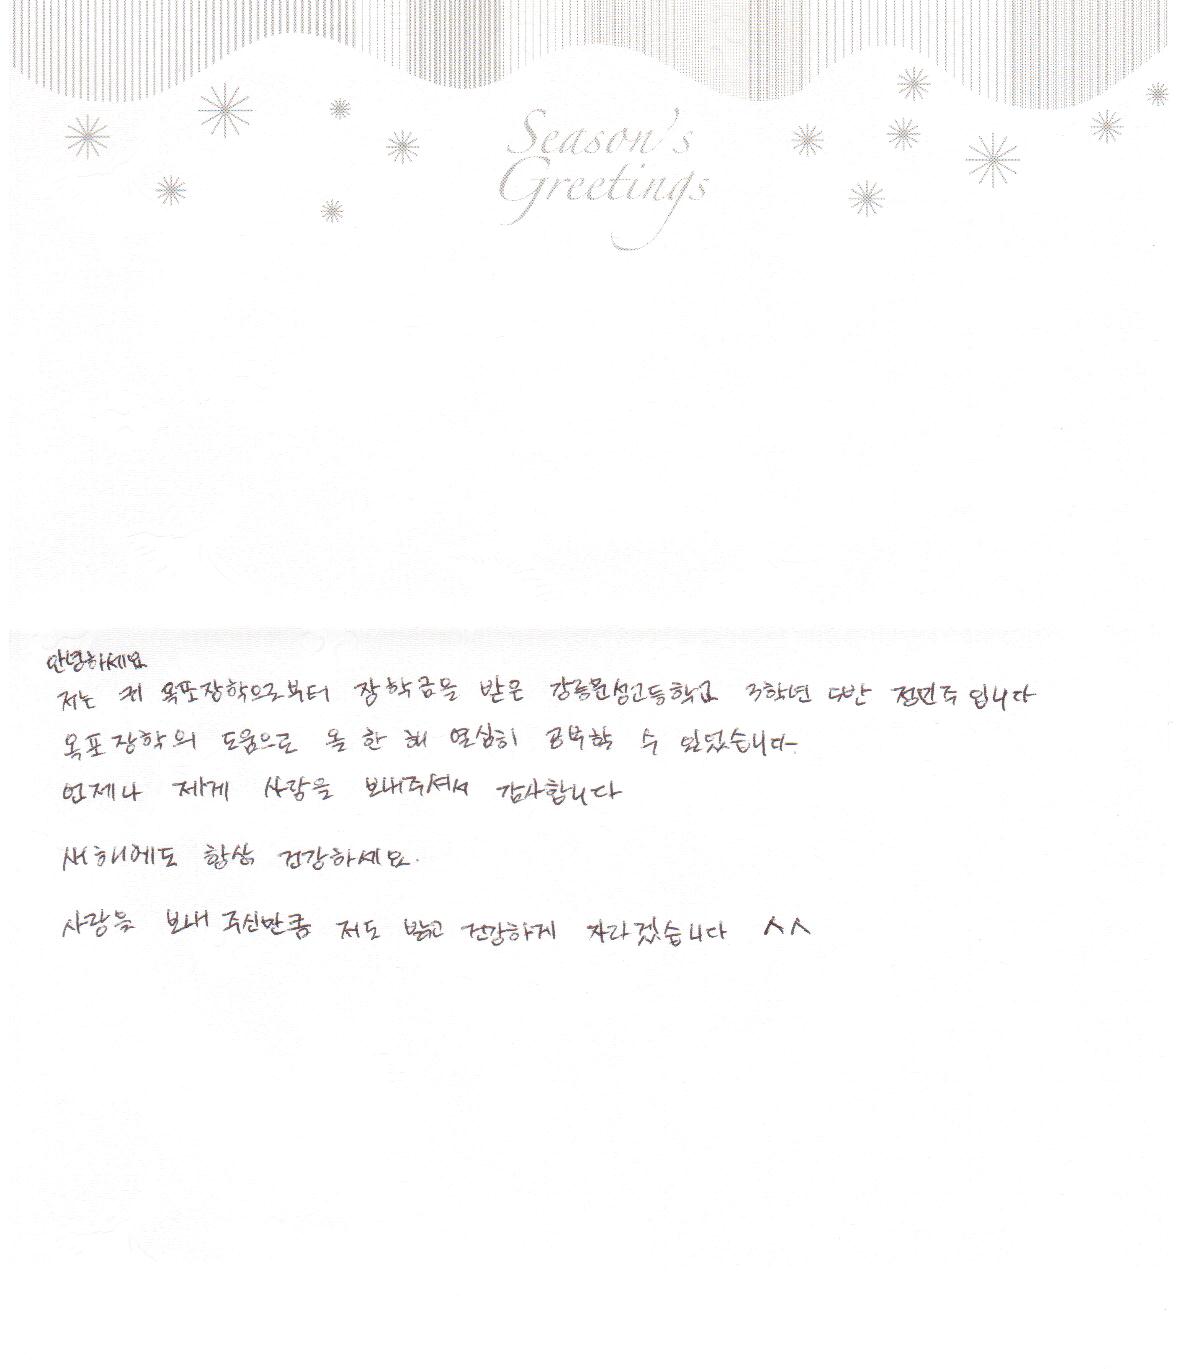 Season's
Greetings
안녕하세요
저는 옥포장학으로부터 장학금을 받은 강릉문성고등학교 3학년 다반 전민주입니다
옥포장학의 도움으로 올 한 해 열심히 공부할 수 있었습니다.
언제나 제게 사랑을 보내주셔서 감사합니다
새해에도 항상 건강하세요.
사랑을 보내 주신만큼 저도 밝고 건강하게 자라겠습니다 ^^